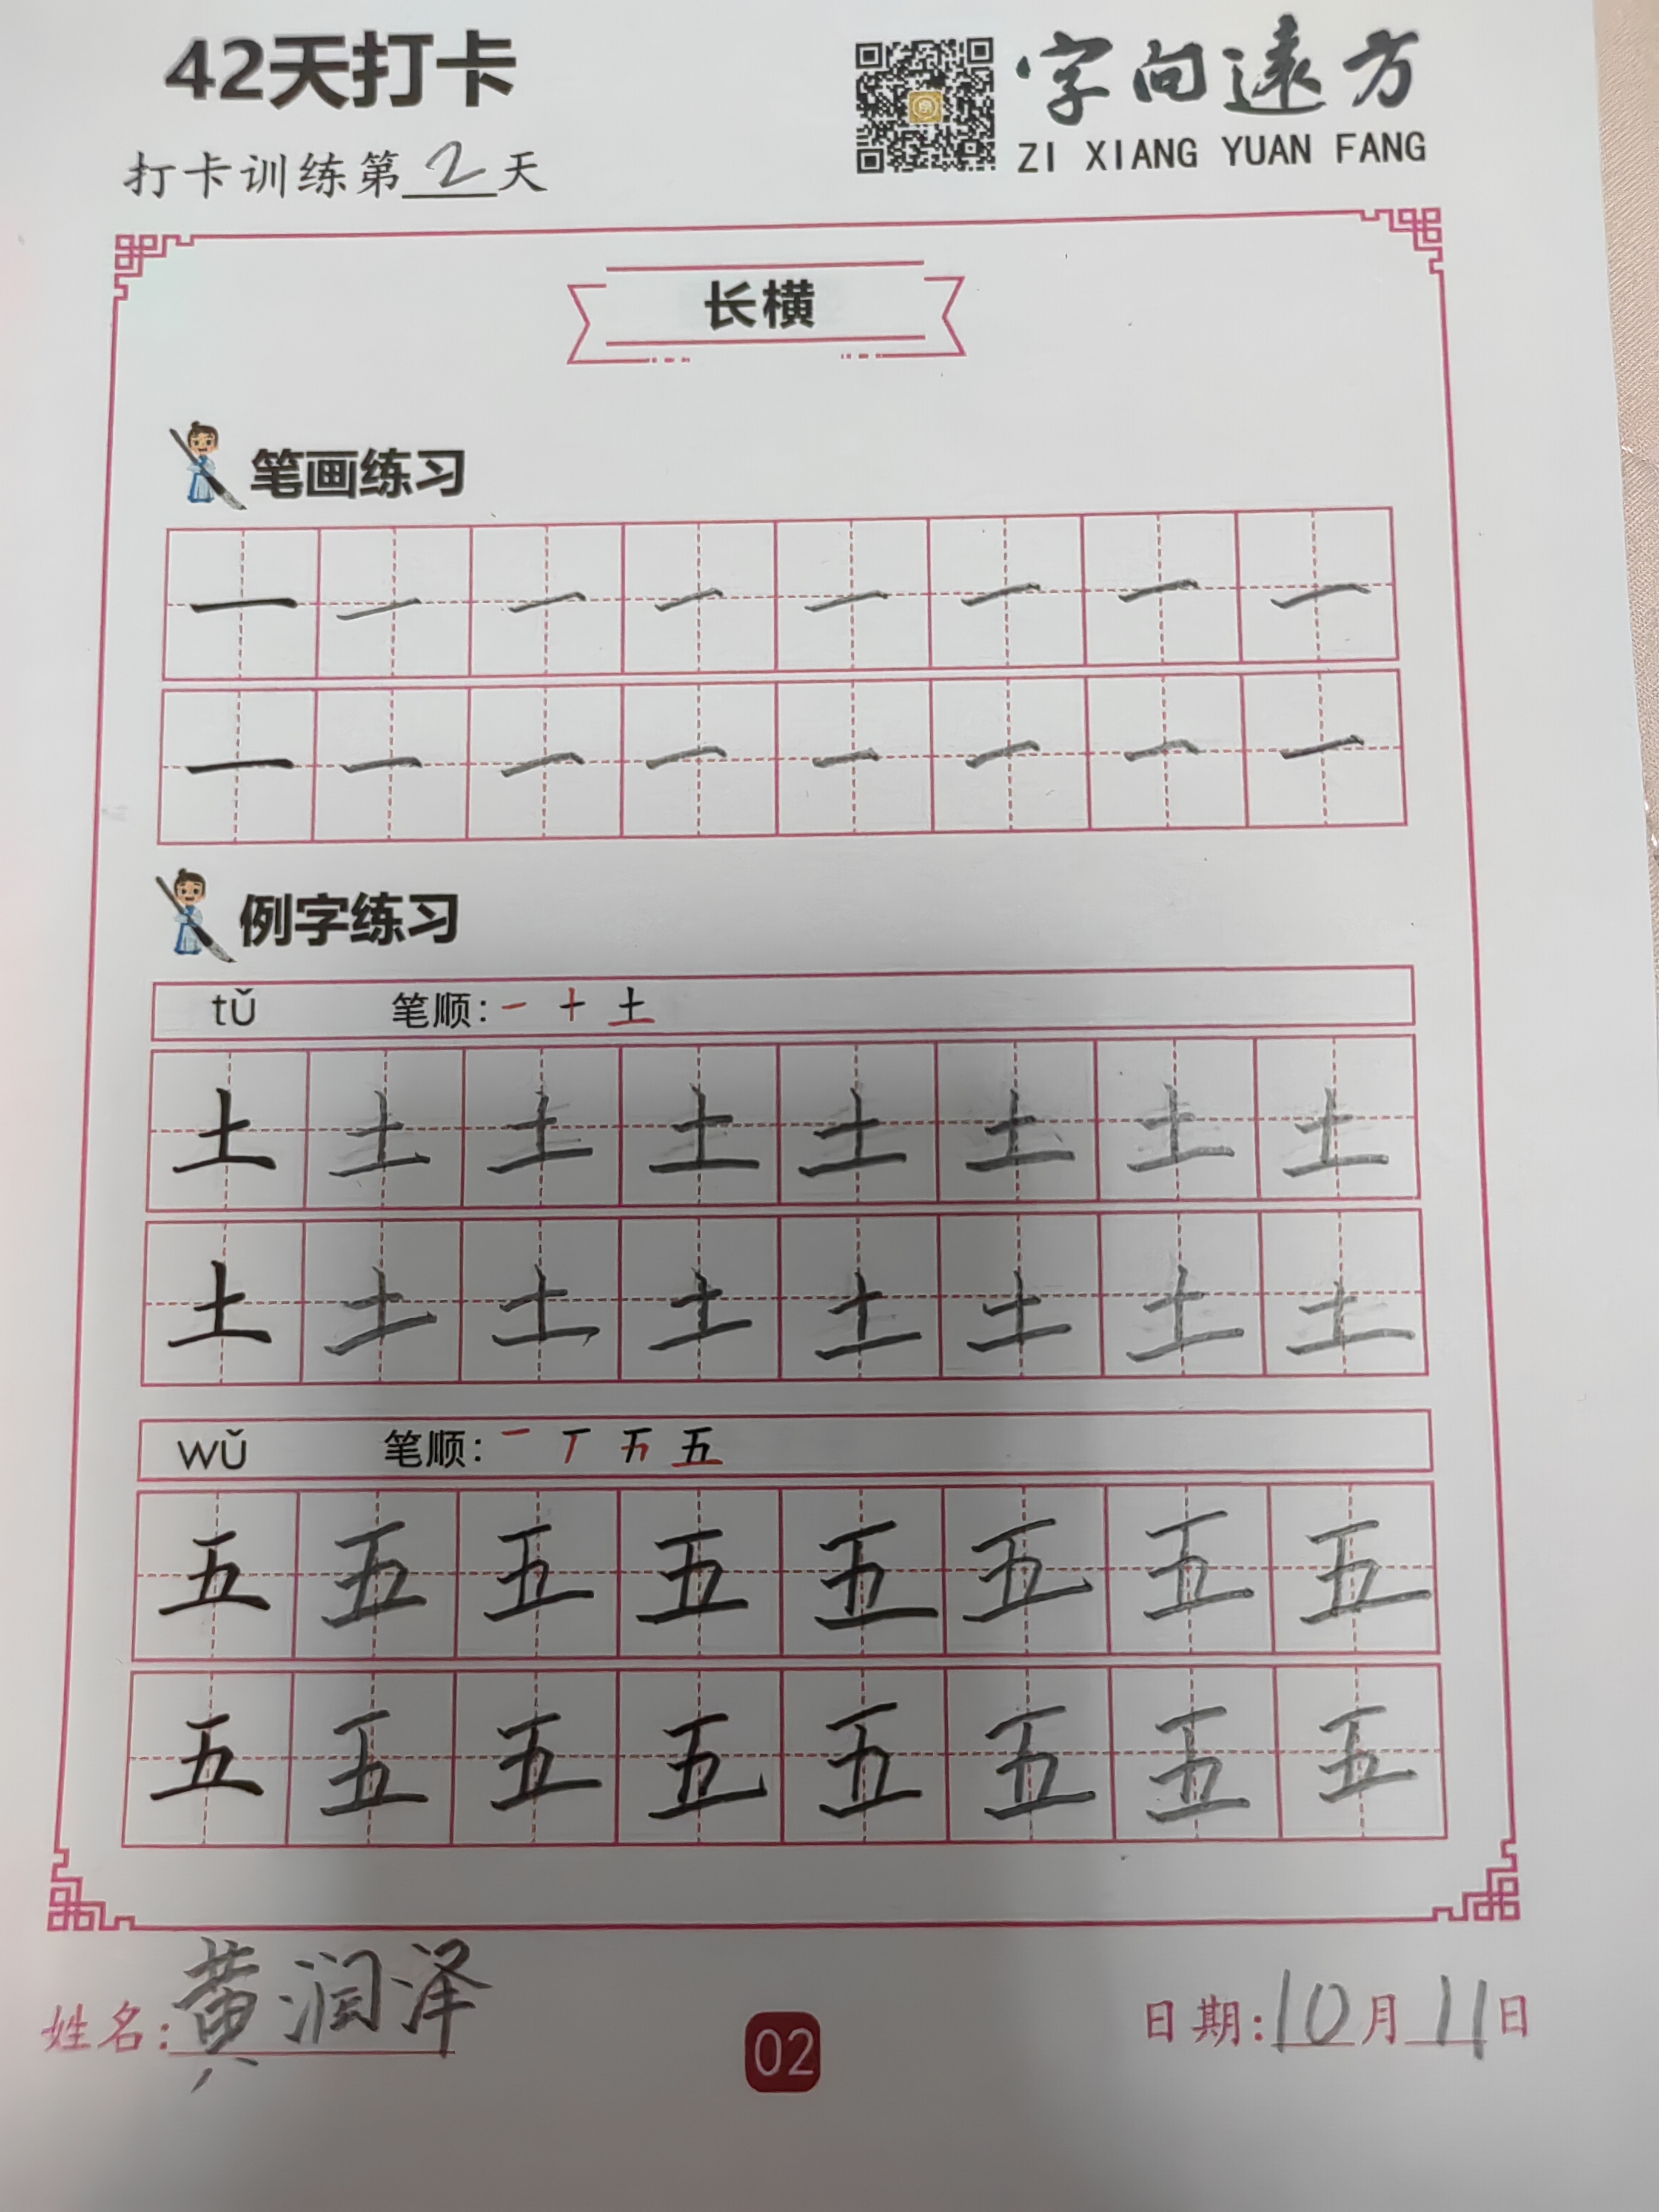 42天打卡
字向遠方
ZI XIANG YUAN FANG
打卡训练第2天
长横
笔画练习
一 一 一 一 一 一 一 一
一 一 一 一 一 一 一 一
例字练习
tǔ 笔顺: 一 十 土
土 土 土 土 土 土 土 土
土 土 土 土 土 土 土 土
wǔ 笔顺: 一 丅 五
五 五 五 五 五 五 五 五
五 五 五 五 五 五 五 五
姓名: 黄润泽
02
日期: 10月11日